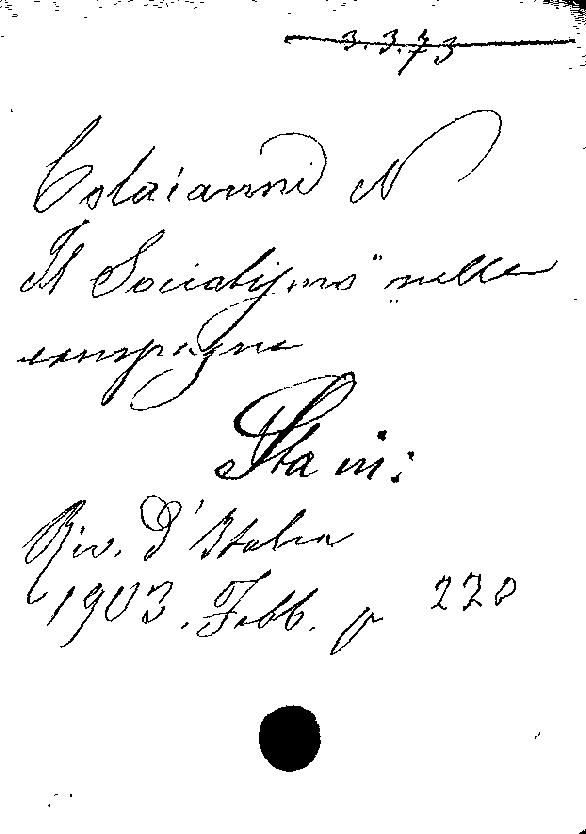 3.3.73
Colaianni N
Il Socialismo" nelle
campagne
Sta in:
Riv. d'Italia
1903. Febb. p 220